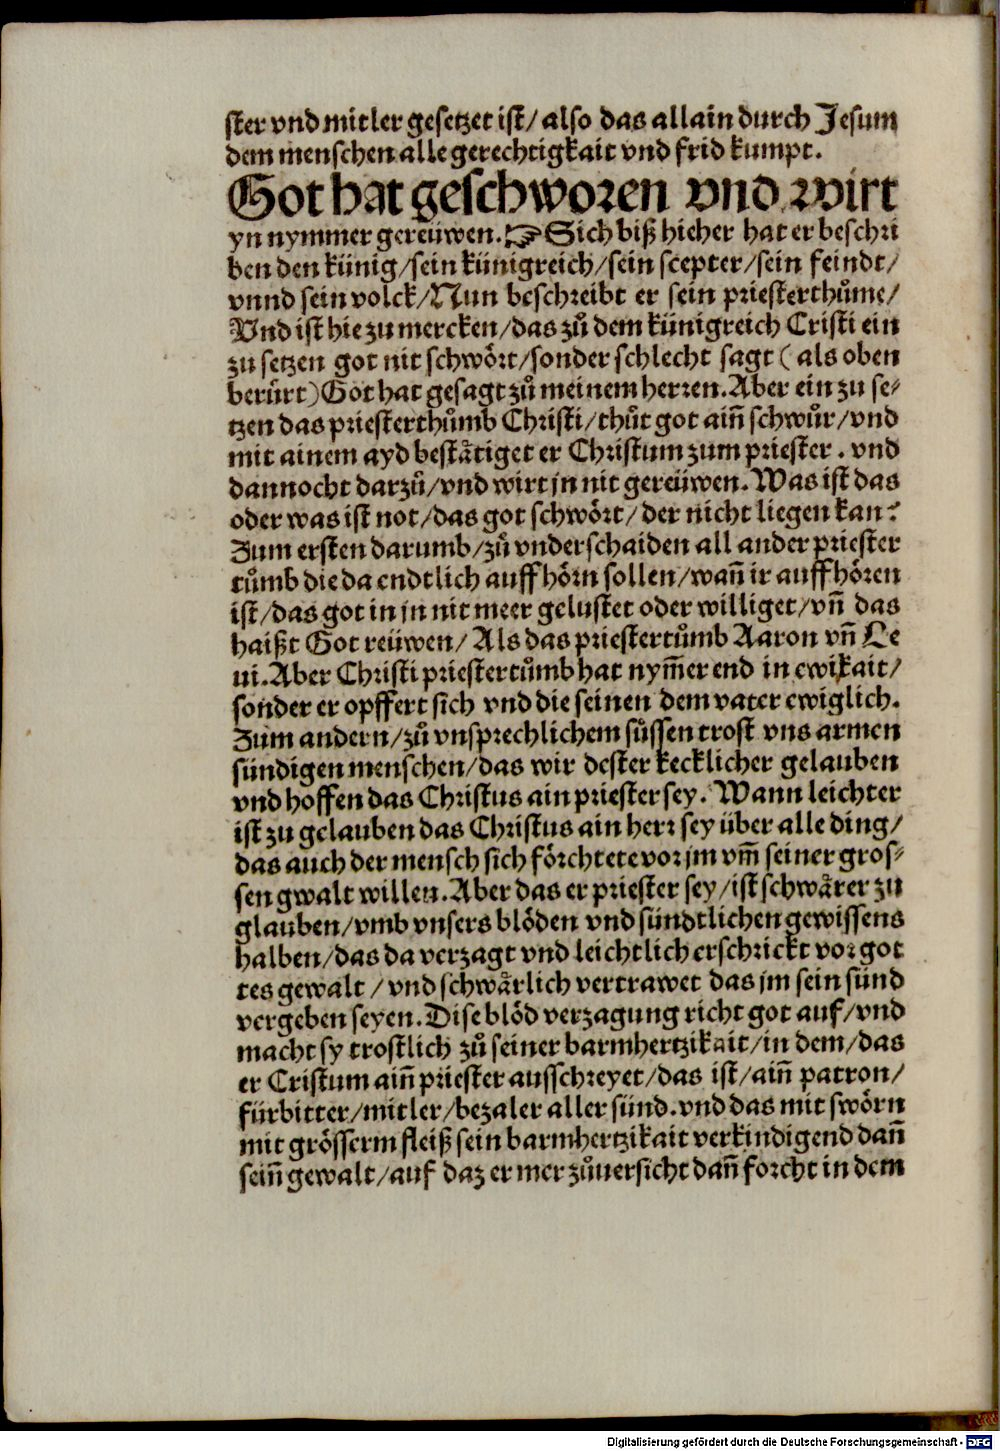 ster vnd mitler gesetzet ist/ also das allain durch Jesum
dem menschen alle gerechtigkait vnd frid kumpt.
Got hat geschworen vnd wirt
yn nymmer gereüwen.☞Sich biß hieher hat er beschri
ben den künig/sein künigreich/sein scepter/sein feindt/
vnnd sein volck/Nun beschreibt er sein priesterthůme/
Vnd ist hie zu mercken/das zů dem künigreich Cristi ein
zu setzen got nit schwört/sonder schlecht sagt ( als oben
berürt) Got hat gesagt zů meinem herren. Aber ein zu se⸗
tzen das priesterthůmb Christi/thůt got ain̄ schwůr/vnd
mit ainem ayd bestätiget er Christum zum priester. vnd
dannocht darzů/vnd wirt jn nit gereüwen. Was ist das
oder was ist not/das got schwört/ der nicht liegen kan?
Zum ersten darumb/zů vnderschaiden all ander priester
tůmb die da endtlich auffhörn sollen/wan̄ ir auffhören
ist/das got in jn nit meer gelustet oder williget/vn̄ das
haißt Got reüwen/ Als das priestertůmb Aaron vn̄ Le
ui. Aber Christi priestertůmb hat nym̄er end in ewikait/
sonder er opffert sich vnd die seinen dem vater ewiglich.
Zům andern/zů vnsprechlichem süssen trost vns armen
sündigen menschen/das wir dester kecklicher gelauben
vnd hoffen das Christus ain priester sey. Wann leichter
ist zu gelauben das Christus ain herr sey über alle ding/
das auch der mensch sich förchtete vor jm vm̄ seiner gros⸗
sen gwalt willen. Aber das er priester sey/ist schwärer zu
glauben/vmb vnsers blöden vnd sündtlichen gewissens
halben/das da verzagt vnd leichtlich erschrickt vor got
tes gewalt /vnd schwärlich vertrawet das jm sein sünd
vergeben seyen. Dise blöd verzagung richt got auf/vnd
macht sy trostlich zů seiner barmhertzikait/in dem/das
er Cristum ain̄ priester ausschreyet/das ist/ain̄ patron/
fürbitter/mitler/bezaler aller sünd. vnd das mit swörn
mit grösserm fleiß sein barmhertzikait verkindigend dan̄
sein̄ gewalt/auf daz er mer zůuersicht dan̄ forcht in dem
Digitalisierung gefördert durch die Deutsche Forschungsgemeinschaft - DFG